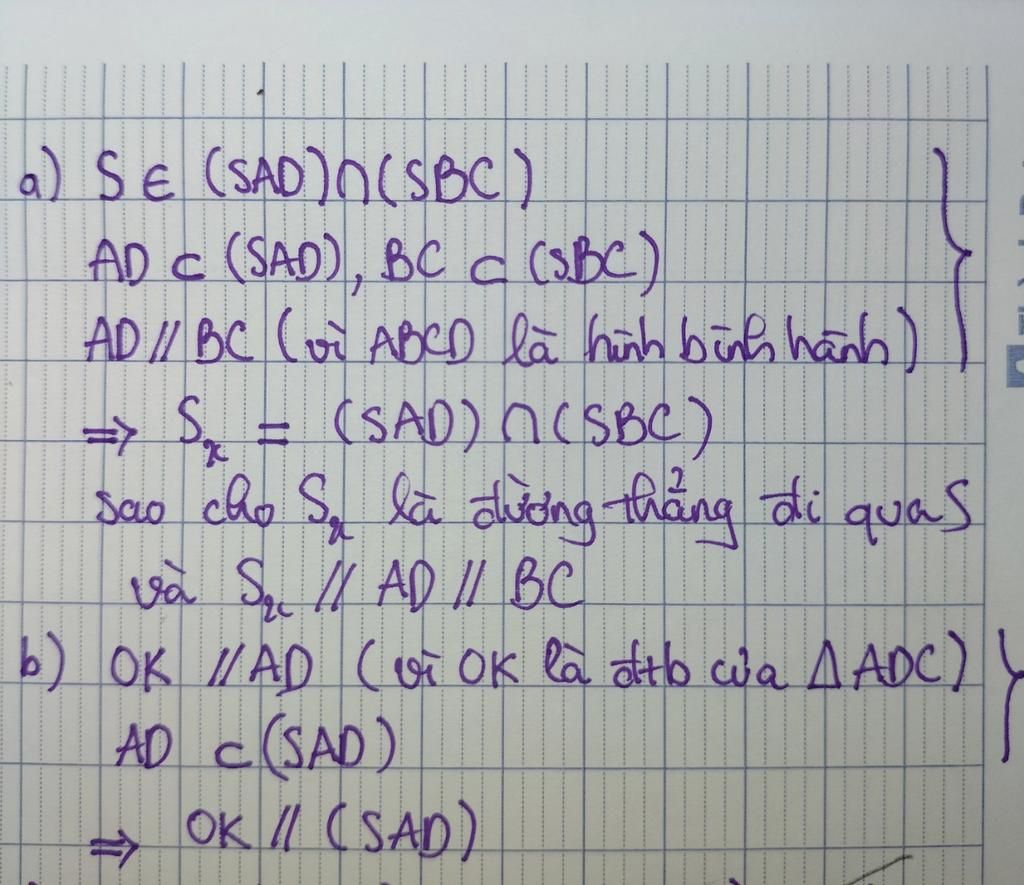 a) S ∈ (SAD)∩(SBC)
AD ⊂ (SAD), BC ⊂ (SBC)
AD // BC (vì ABCD là hình bình hành)
⇒ Sx = (SAD) ∩ (SBC)
sao cho Sx là đường thẳng đi qua S
và Sx // AD // BC
b) OK // AD (vì OK là đtb của Δ ADC)
AD ⊂ (SAD)
⇒ OK // (SAD)